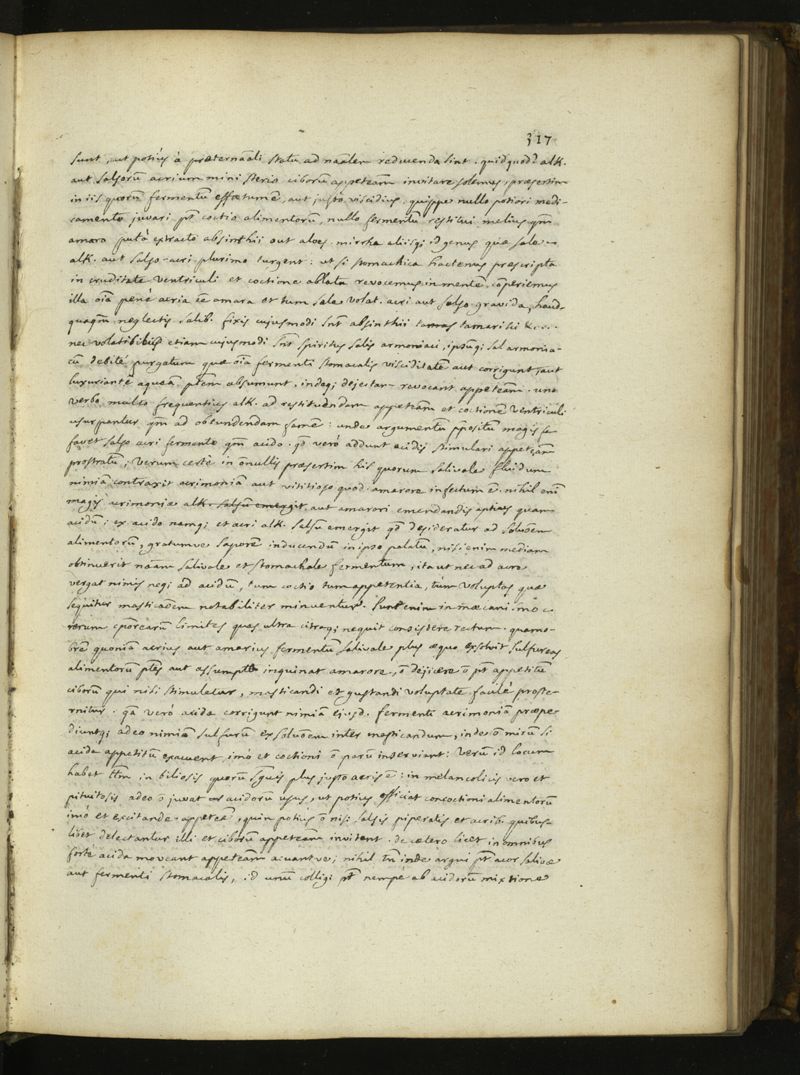 317
sunt, aut potiùs à præternãali statu ad nãalem reducenda sint. quid quod? alk.
aut salsorũ acrium ministerio ciborũ appetẽam invitare solemus, præsertim
in iis quorũ fermentũ effœtum ẽ, aut justo viscidius. quippe nullo potiori medi-
camento juvari pt̃ coctio alimentorũ, nullo fermentũ restitui melius qm̃
amaro putà extracto absinthii aut aloes. mirrha aliisq; id genus quæ sale
alk. aut salso-acri plurimo turgent: ut si stomachica hactenus præscripta
in cruditate ventriculi et coctione ablata revocemus in mentẽ. cõperiemus
illa oĩa penè acria ẽẽ amara et tum sale volat. acri aut salso gravida, haud-
quaqm̃ neglectis salib. fixis cujusmodi snt̃ absinthii tamarisci &c..
nec volatibibus etiam cujusmodi snt̃ spiritus salis armoniaci, ipsuq; sal armonia-
cũ debitè purgatum quæ oĩa fermenti stomacalis visciditatẽ aut corrigunt, aut
luxuriantẽ aqueã ptem absumunt. indeq; dejectam revocant appetẽam. uno
verbo multo frequentius alk. ad restituendam appetẽam et coctionẽ ventriculi
usurpantur qm̃ ad obtundendam famẽ: unde argumentũ ppositũ magis
favet salso acri fermento qm̃ acido. qd̃ verò addunt acidis stimulari appetẽam
prostratã; verum certè in õnullis præsertim his quorum salivale fluidum
nimiã contraxit acrimoniã aut vititioso quod. amarore infectum ẽ. nihil eni
magis acrimoniæ alk. salsũ emergit aut amarori emendandis aptius quam
acidũ; ex acido namq; et acri alk. salsũ emergit qd̃ desideratur ad soluõem
alimentorũ, gratumve saporẽ inducendũ in ipso palatũ, nisi enim mediam
obtinuerit nãam salivale et stomachale fermentum, ita ut nec ad acre
vergat nimis neq; ad acidũ, tum coctio tum appetentia, tùm voluptas quæ
sequitur masticãoem notabiliter minuentur. sunt enim in mæcani. imò
rerum cporearũ limites quos ultra citroq; nequit consistere rectum. quamo-
brẽ quoniã acrius aut amarius fermentũ salivale plus æquo exsolvit sulfureas
alimentorũ ptes aut assumpte inquinat amarore, õ dejicere õ pt̃ appetitũ
ciborũ qui nisi stimuletur, masticandi et gustandi voluptatẽ facilè proste-
rnitur. qa verò acida corrigunt nimiã ej.sd. fermenti acrimoniã præpe-
diuntq; adeo nimiã sulfurũ exsoluõem inter masticandum, indeo õ mirũ si
acida appetitũ exacuent, imò et coctioni õ parũ inserviant: verũ id locum
habet ttm̃ in biliosis quorũ sguis plus justo acris ẽ: in melancolicis vero et
pituitosis adeo õ juvat acidorũ usus, ut potius officiat concoctioni alimentorũ
imò et excitandæ appeteæ, quin potius õ nisi salsis piperatis et acrib. quibus-
libet delectantur illi et ciborũ appetẽam invitent. de cætero licet in omnibus
fortè acida moveant appetẽam acuantve; nihil tñ inde argui pt̃ acor salivæ
aut fermenti stomacalis, id unũ colligi pt̃ nempe ab acidorũ mixtione